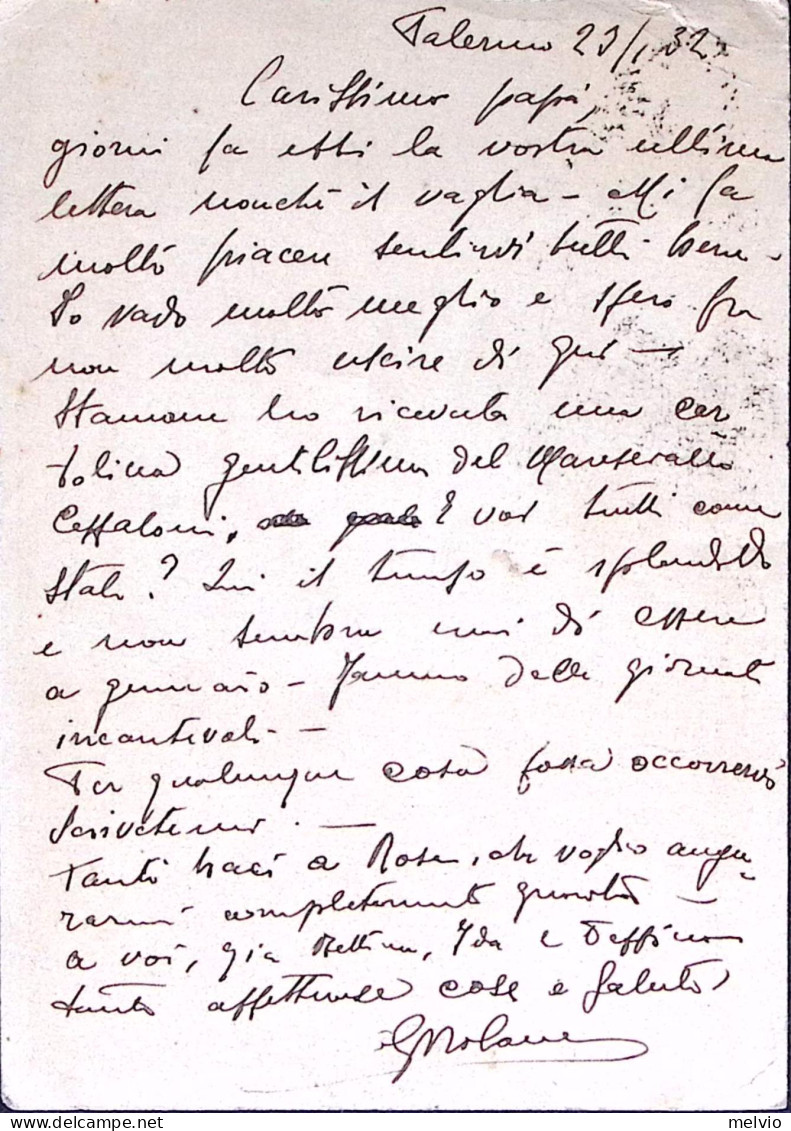 Palermo 23/1 32
Carissimo papà,
giorni fa ebbi la vostra ultima
lettera nonché il vaglia - Mi fa
molto piacere sentirvi tutti bene -
Io vado molto meglio e spero fra
non molto uscire di qui -
Stamane ho ricevuta una car
tolina gentilissima del Maresciallo
Ceffaloni. E voi tutti come
state? Qui il tempo è splendido
e non sembra mai di essere
a gennaio - Fanno delle giornate
incantevoli -
Per qualunque cosa possa occorrervi
scrivetemi. -
Tanti baci a Rosa, che voglio augu-
rarmi completamente guarita -
a voi, zia Bettina, Ida e Peppino
tante affettuose cose e saluti
melvio